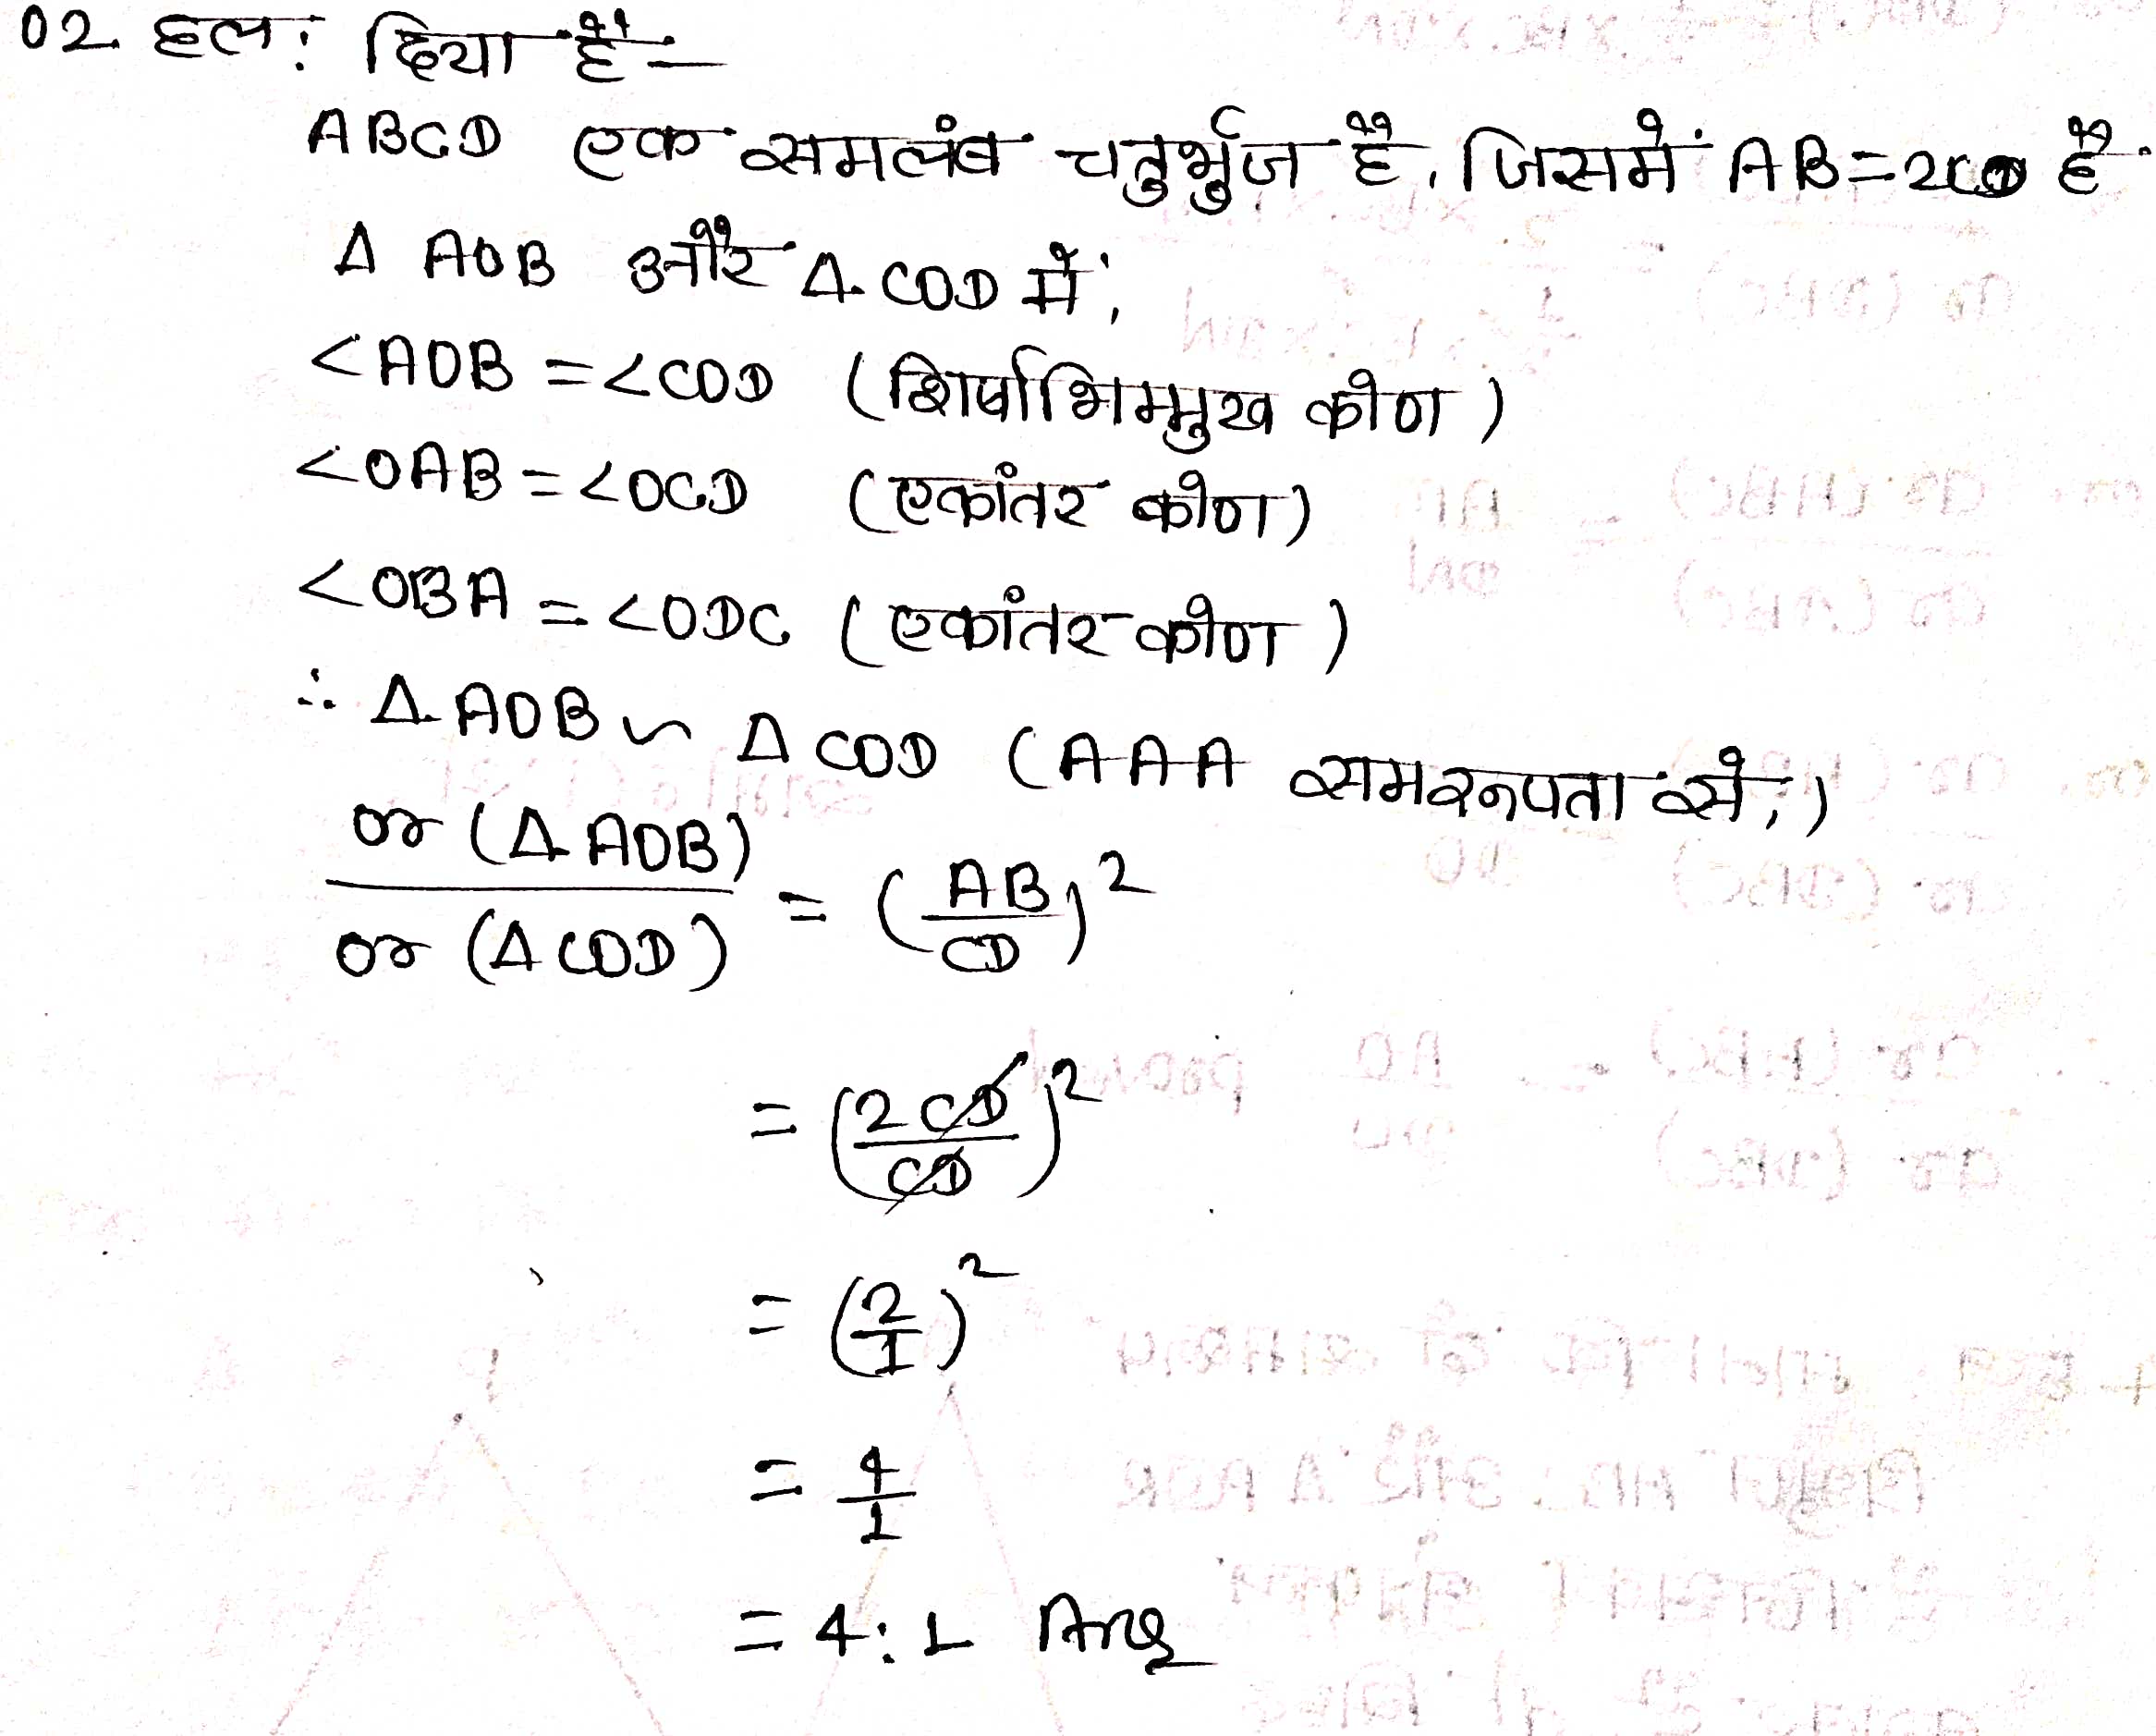 02 हल: दिया है —
ABCD एक समलंब चतुर्भुज है, जिसमें AB = 2CD है
Δ AOB और Δ COD में,
<AOB = <COD (शिर्षाभिम्मुख कोण)
<OAB = <OCD (एकांतर कोण)
<OBA = <ODC (एकांतर कोण)
∴ Δ AOB ∽ Δ COD (AAA समरूपता से,)
or (Δ AOB) / or (Δ COD) = (AB/CD)²
= (2CD/CD)²
= (2/1)²
= 4/1
= 4:1 Ans